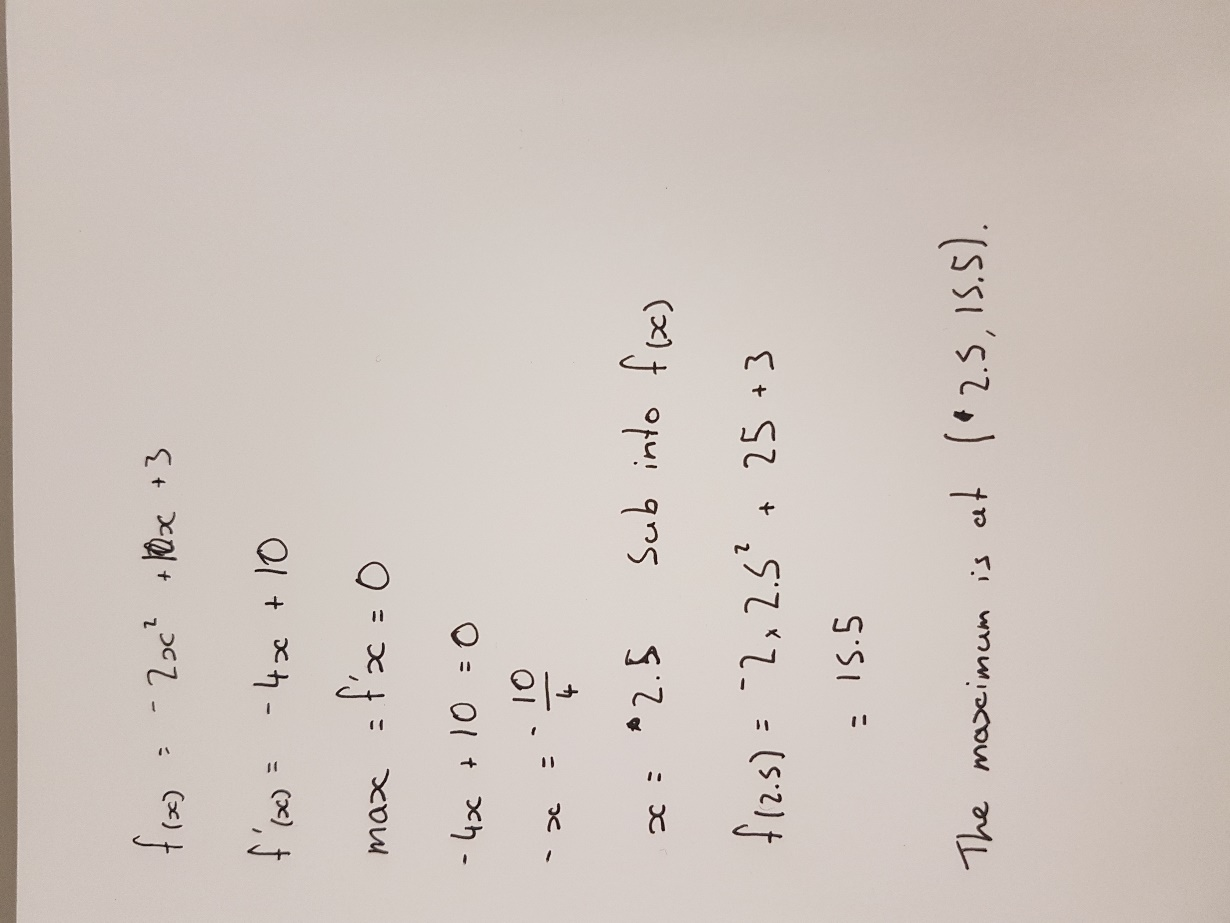 f(x) = -2x² + 10x + 3
f'(x) = -4x + 10
max = f'x = 0
-4x + 10 = 0
-x = -10/4
x = 2.5 Sub into f(x)
f(2.5) = -2 x 2.5² + 25 + 3
= 15.5
The maximum is at (2.5, 15.5).